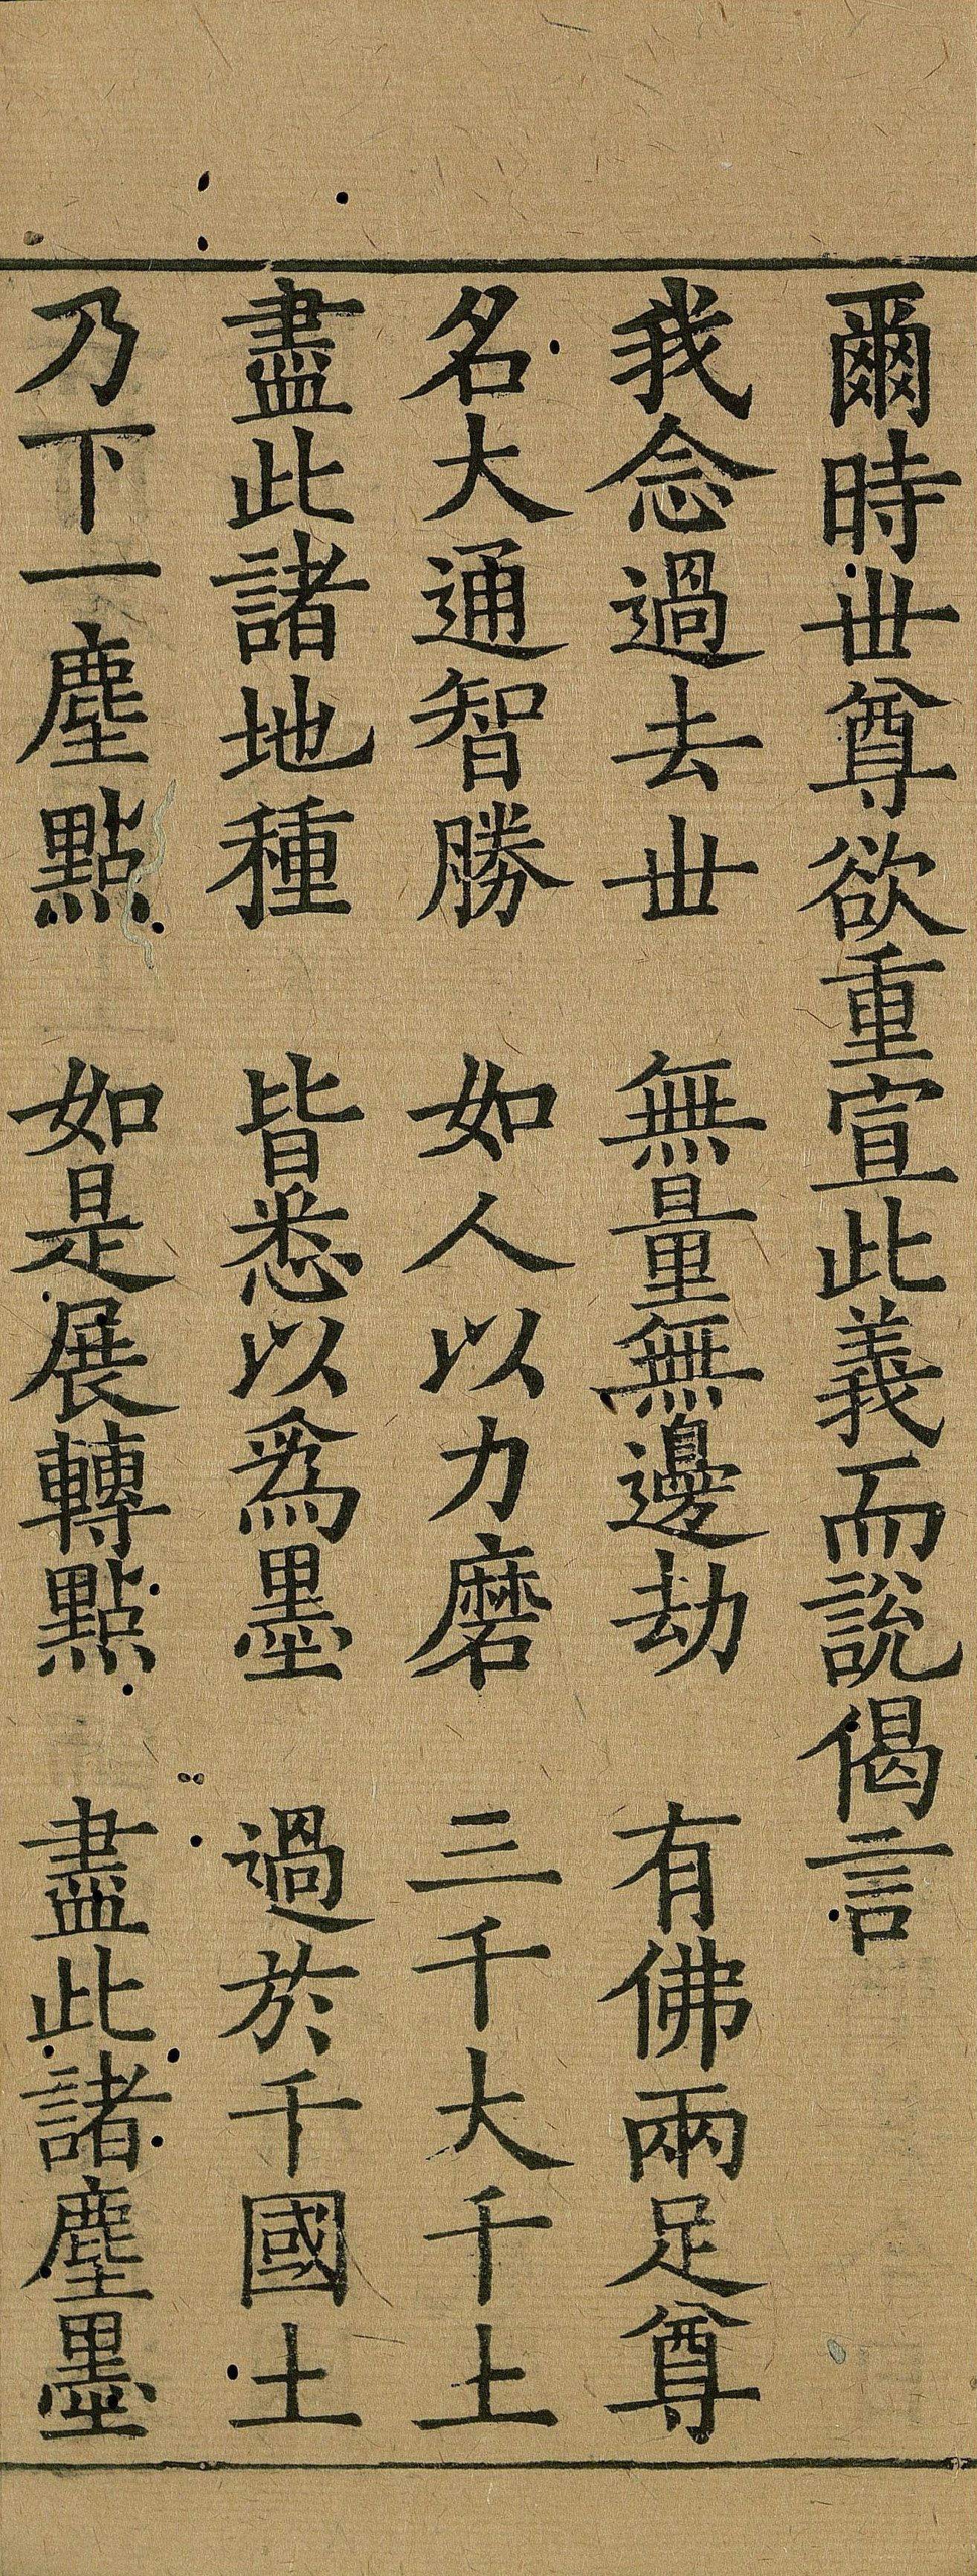 爾時世尊欲重宣此義而說偈言
我念過去世　無量無邊劫　有佛兩足尊
名大通智勝　如人以力磨　三千大千土
盡此諸地種　皆悉以爲墨　過於千國土
乃下一塵點　如是展轉點　盡此諸塵墨